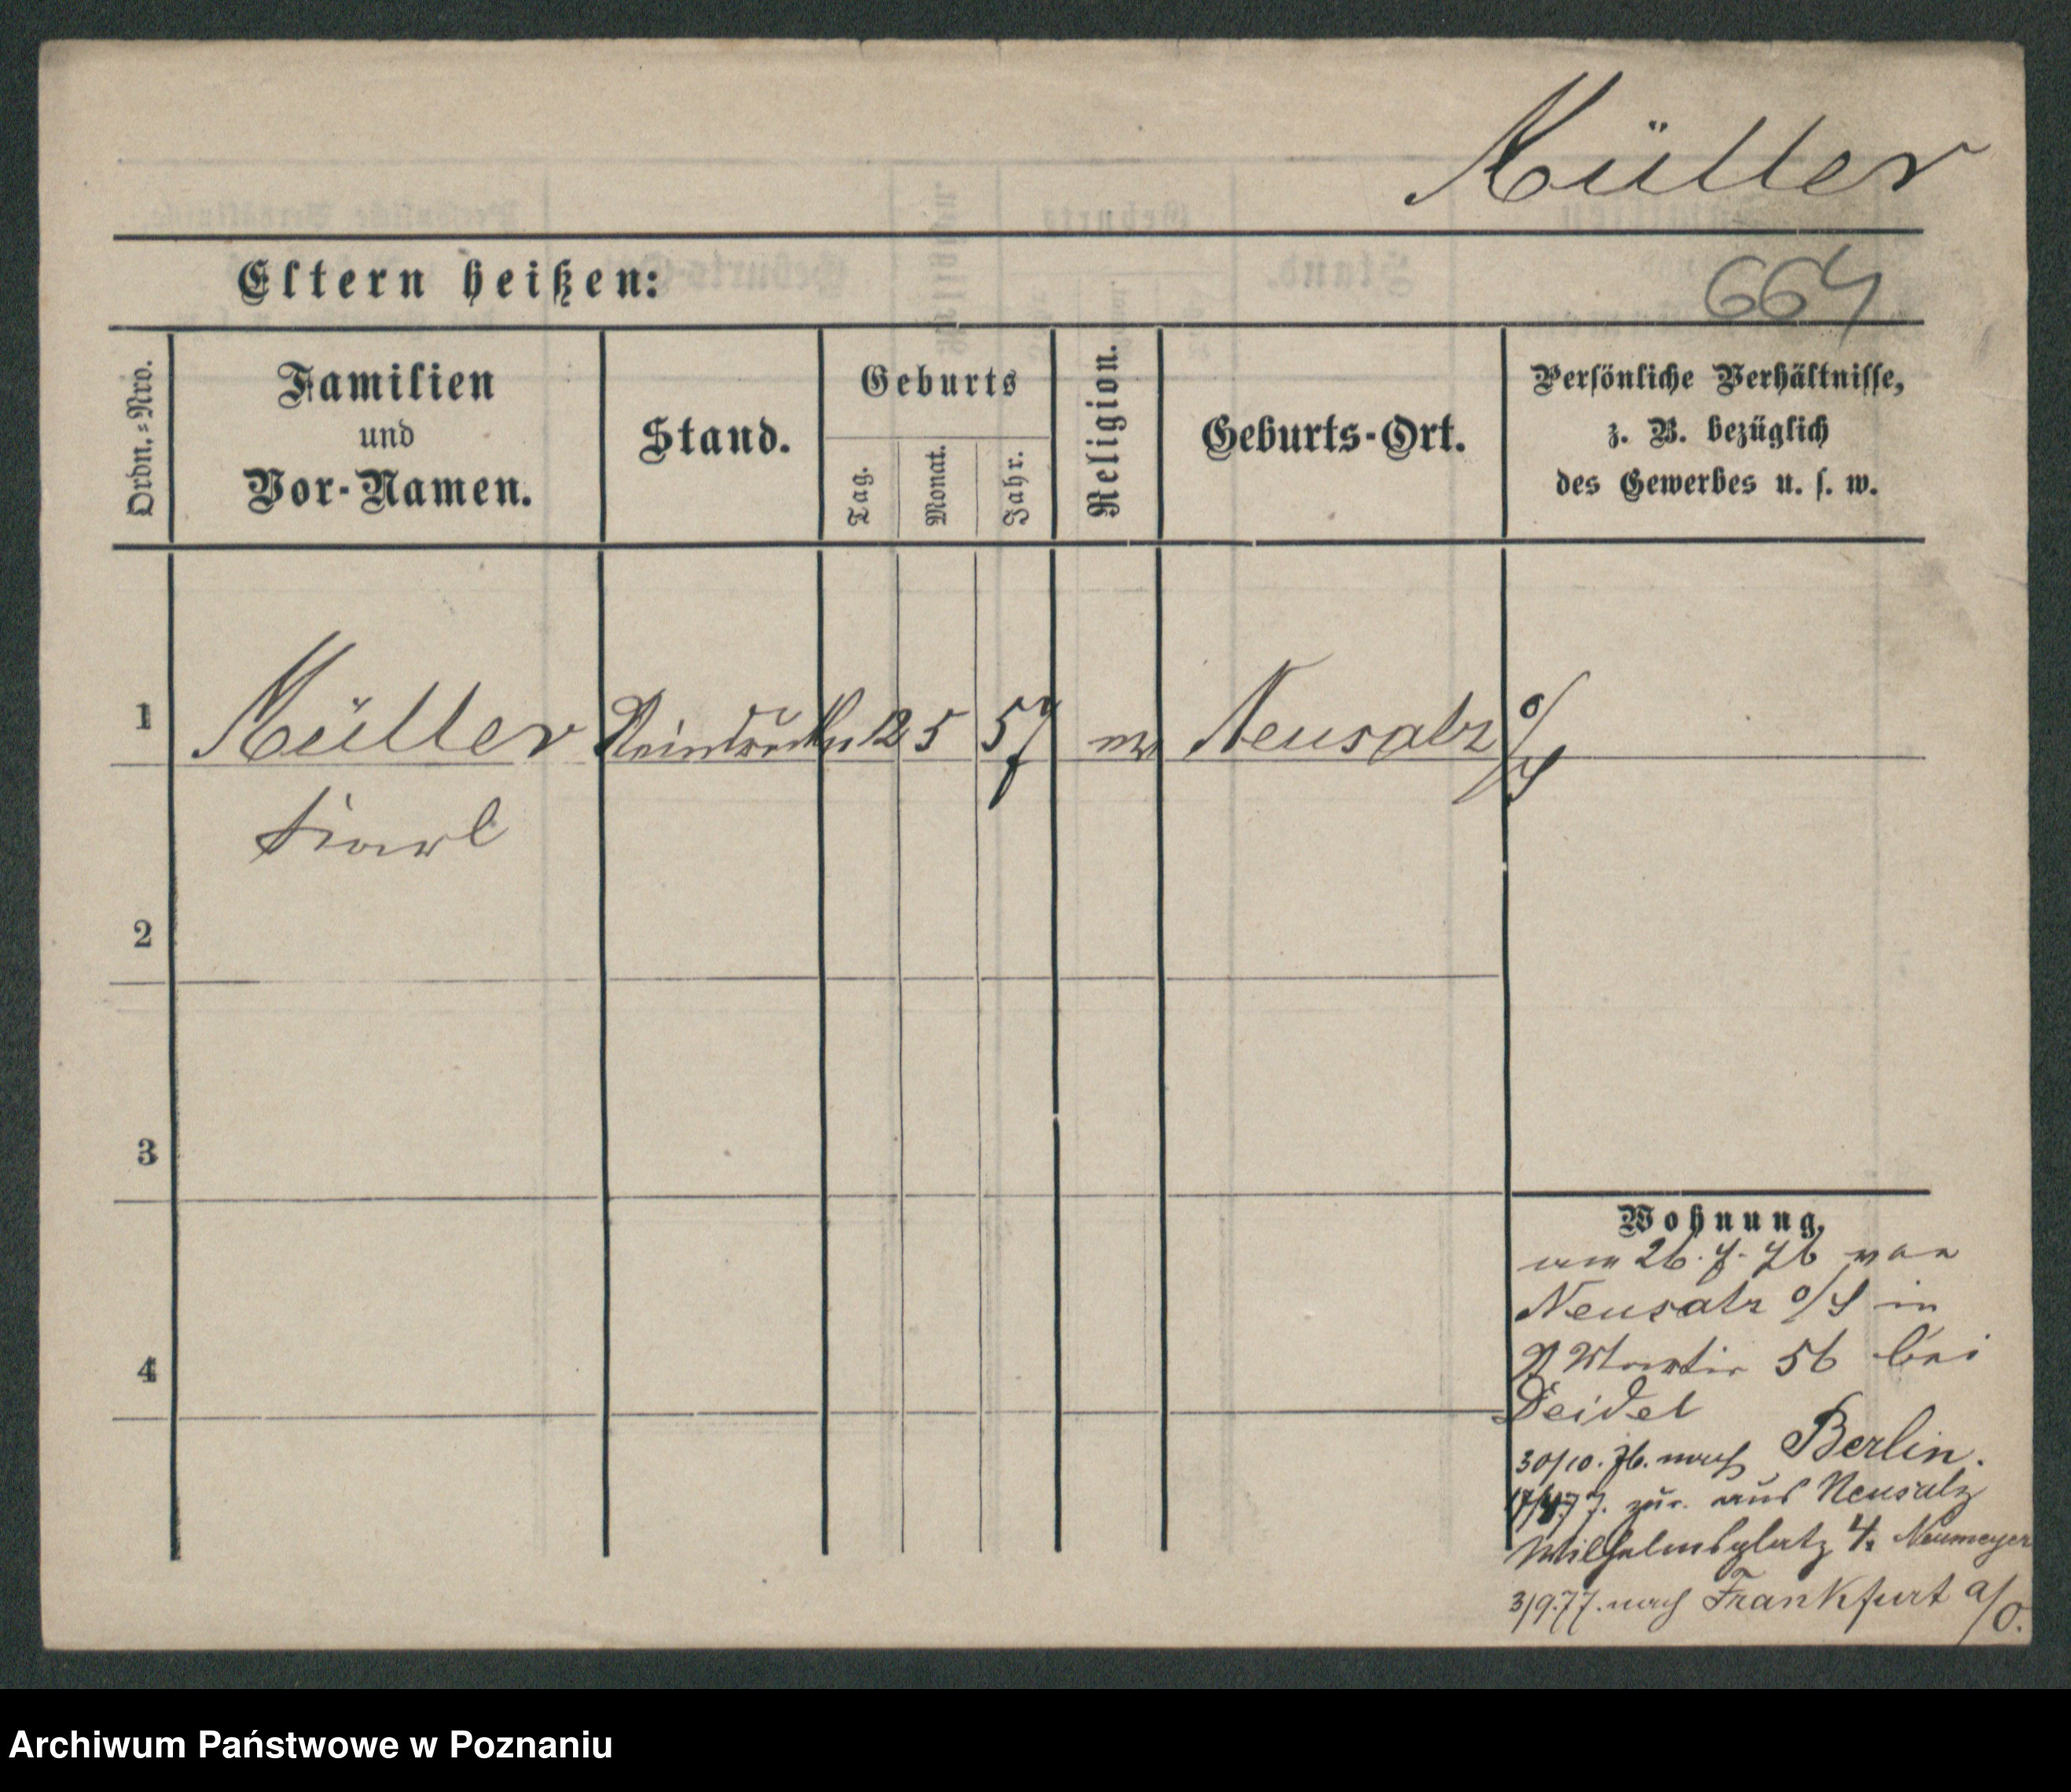 Müller
Eltern heißen:
664
Ordn.-Nro.
Familien
und
Vor-Namen.
Stand.
Geburts
Tag.
Monat.
Jahr.
Religion.
Geburts-Ort.
Persönliche Verhältnisse,
z. B. bezüglich
des Gewerbes u. s. w.
1
Müller 12 5 57 ev Neusalz o/S
Karl
2
3
4
Wohnung.
am 26. 7. 76 von
Neusalz o/S in
St Martin 56 bei
Deidel
30/10. 76. nach Berlin.
17/4 77. zur. aus Neusalz
Wilhelmsplatz 4. Neumeyer
3/9.77. nach Frankfurt a/O.
Archiwum Państwowe w Poznaniu